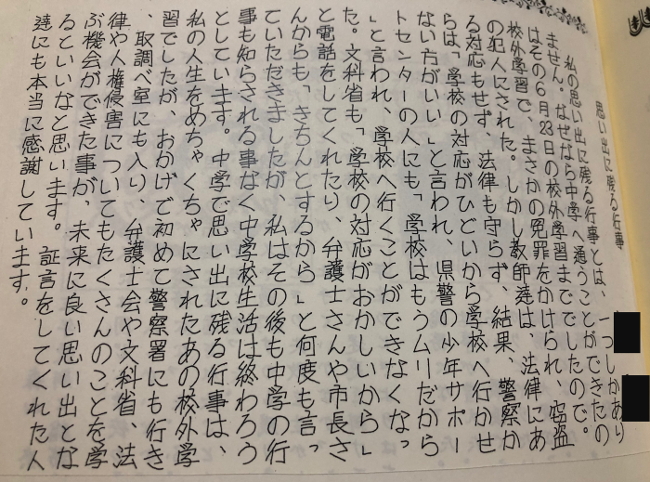 思い出に残る行事
私の思い出に残る行事とは、一つしかあり
ません。なぜなら中学へ通うことができたの
はその6月23日の校外学習まででしたので。
校外学習で、まさかの冤罪をかけられ、窃盗
の犯人にされた。しかし教師達は、法律にあ
る対応もせず、法律も守らず、結果、警察か
らは「学校の対応がひどいから学校へ行かせ
ない方がいい」と言われ、県警の少年サポー
トセンターの人にも「学校はもうムリだから
」と言われ、学校へ行くことができなくなっ
た。文科省も「学校の対応がおかしいから」
と電話をしてくれたり、弁護士さんや市長さ
んからも「きちんとするから」と何度も言っ
ていただきましたが、私はその後も中学の行
事も知らされる事なく中学校生活は終わろう
としています。中学で思い出に残る行事は、
私の人生をめちゃくちゃにされたあの校外学
習でしたが、おかげで初めて警察署にも行き
、取調べ室にも入り、弁護士会や文科省、法
律や人権侵害についてもたくさんのことを学
ぶ機会ができた事が、未来に良い思い出とな
るといいなと思います。証言をしてくれた人
達にも本当に感謝しています。